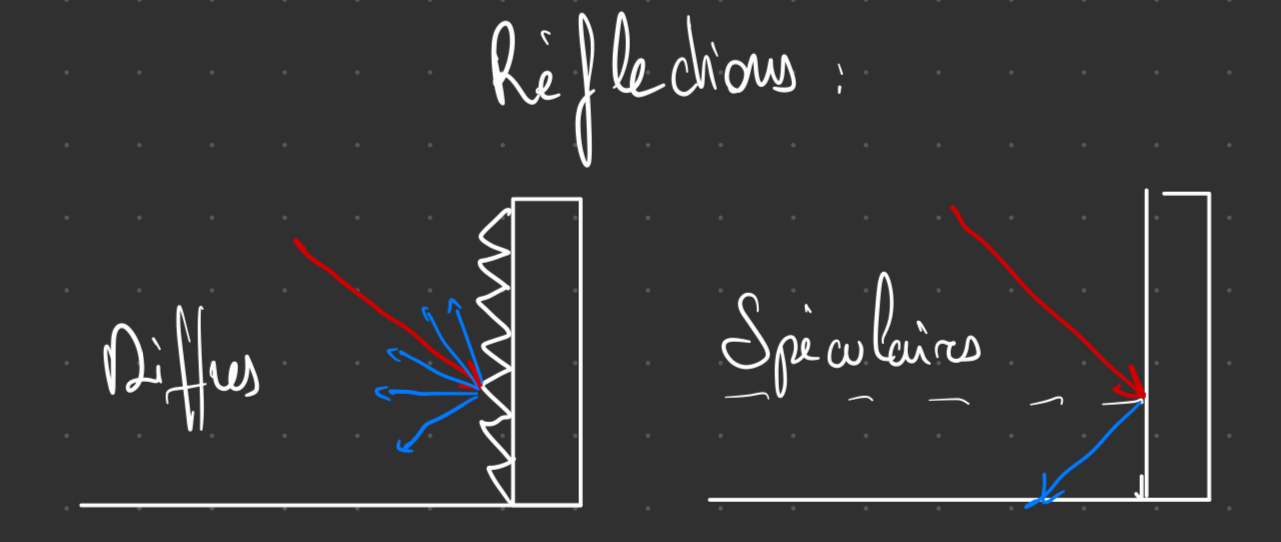 Réflections :
Diffus
Spéculaires